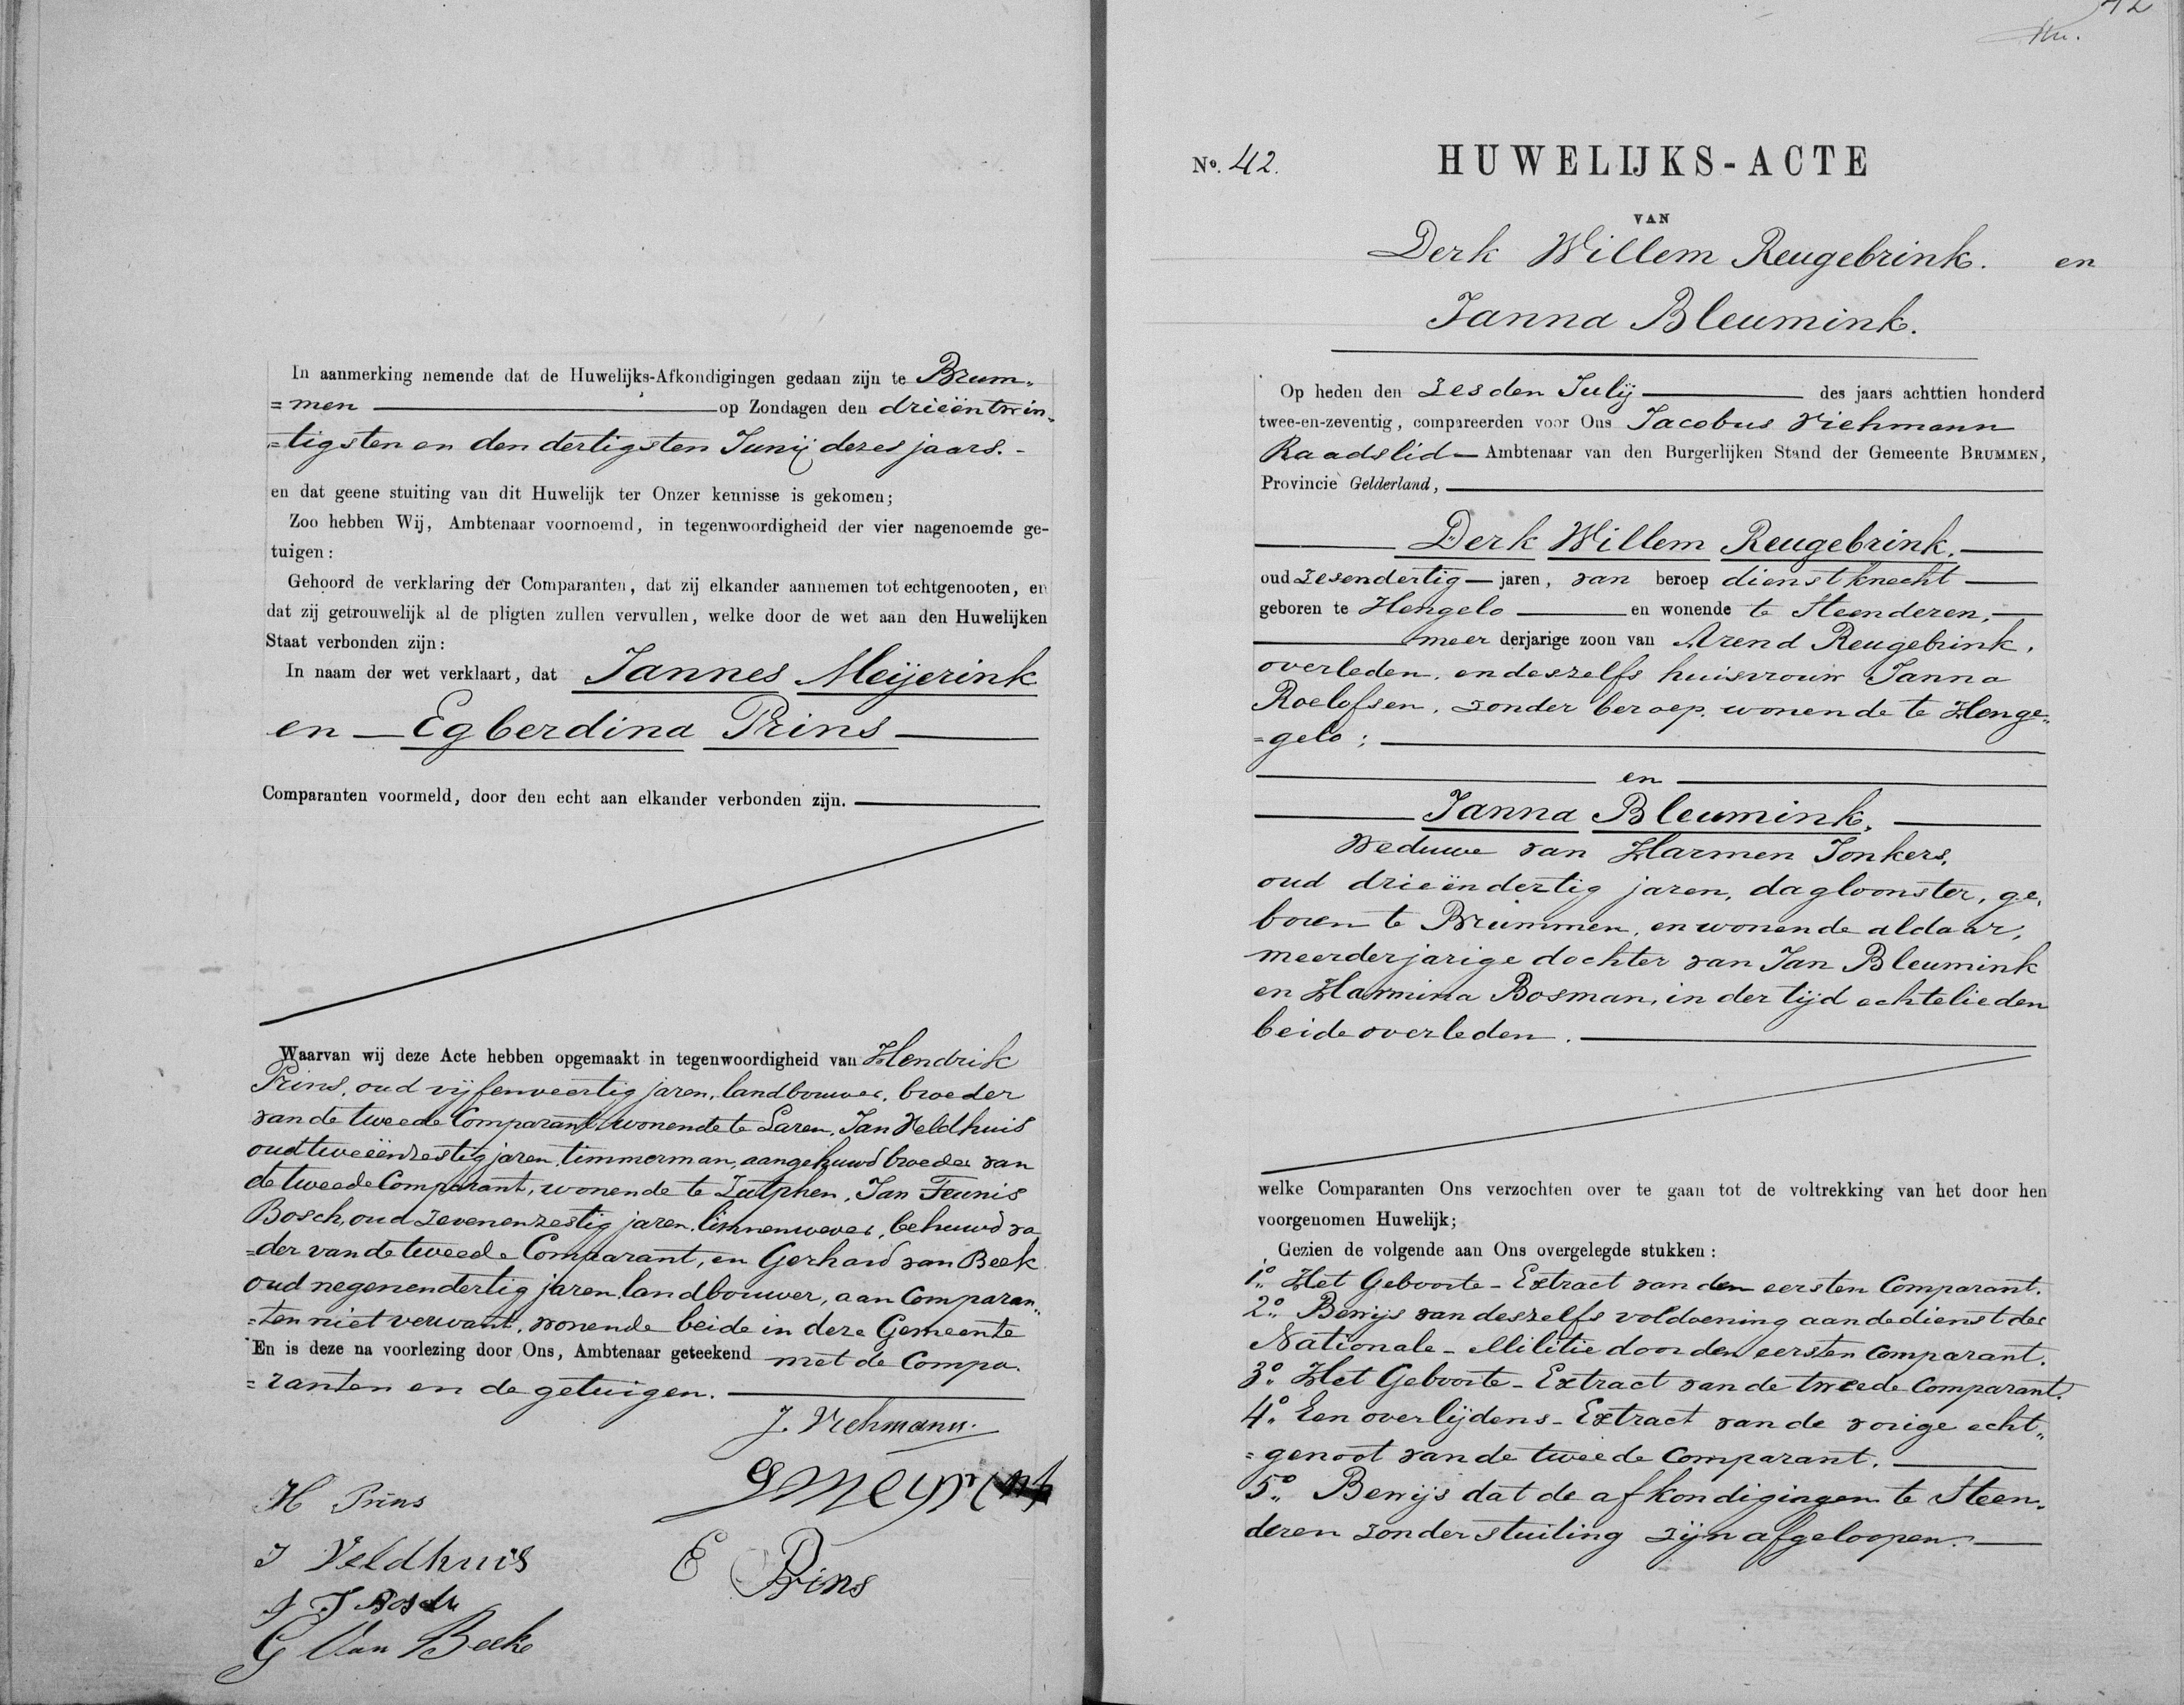 In aanmerking nemende dat de Huwelijks-Afkondigingen gedaan zijn te Brum„
=men op Zondagen den drieëntwin„
=tigsten en den dertigsten Junij dezes jaars. -
en dat geene stuiting van dit Huwelijk ter Onzer kennisse is gekomen;
Zoo hebben Wij, Ambtenaar voornoemd, in tegenwoordigheid der vier nagenoemde ge-
tuigen:
Gehoord de verklaring der Comparanten, dat zij elkander aannemen tot echtgenooten, en
dat zij getrouwelijk al de pligten zullen vervullen, welke door de wet aan den Huwelijken
Staat verbonden zijn:
In naam der wet verklaart, dat Jannes Meijerink
en — Egberdina Prins —
Comparanten voormeld, door den echt aan elkander verbonden zijn.
Waarvan wij deze Acte hebben opgemaakt in tegenwoordigheid van Hendrik
Prins, oud vijfenveertig jaren, landbouwer, broeder
van de tweede Comparant, wonende te Laren, Jan Veldhuis
oud tweeënzestig jaren, timmerman, aangehuwd broeder van
de tweede Comparant, wonende te Zutphen, Jan Teunis
Bosch, oud zevenenzestig jaren, linnenwever, behuwd va
=der van de tweede Comparant, en Gerhard van Beek
oud negenendertig jaren, landbouwer, aan Comparan„
=ten niet verwant, wonende beide in deze Gemeente
En is deze na voorlezing door Ons, Ambtenaar geteekend met de Compa.
=ranten en de getuigen.
J. Viehmann.
G Meyrink
H Prins
E Prins
J Veldhuis
J T Bosch
G Van Beek
42
No. 42.
HUWELIJKS-ACTE
VAN
Derk Willem Reugebrink. en
Janna Bleumink.
Op heden den zesden Julij des jaars achttien honderd
twee-en-zeventig, compareerden voor Ons Jacobus Viehmann
Raadslid — Ambtenaar van den Burgerlijken Stand der Gemeente BRUMMEN,
Provincie Gelderland,
Derk Willem Reugebrink.
oud zesendertig — jaren, van beroep dienstknecht
geboren te Hengelo en wonende te Steenderen,
meer derjarige zoon van Arend Reugebrink,
overleden, en deszelfs huisvrouw Janna
Roelofsen, zonder beroep, wonende te Henge„
=gelo;
en
Janna Bleumink,
Weduwe van Harmen Jonkers,
oud drieëndertig jaren, dagloonster, ge„
boren te Brummen, en wonende aldaar,
meerderjarige dochter van Jan Bleumink
en Harmina Bosman, in der tijd echtelieden
beide overleden.
welke Comparanten Ons verzochten over te gaan tot de voltrekking van het door hen
voorgenomen Huwelijk;
Gezien de volgende aan Ons overgelegde stukken:
1o. Het Geboorte-Extract van den eersten Comparant.
2o. Bewijs van deszelfs voldoening aan de dienst der
Nationale-Militie door den eersten Comparant.
3o. Het Geboorte-Extract van de tweede Comparant.
4o. Een overlijdens-Extract van de vorige echt„
=genoot van de tweede Comparant.
5o. Bewijs dat de afkondigingen te Steen„
deren zonder stuiting zijn afgeloopen.